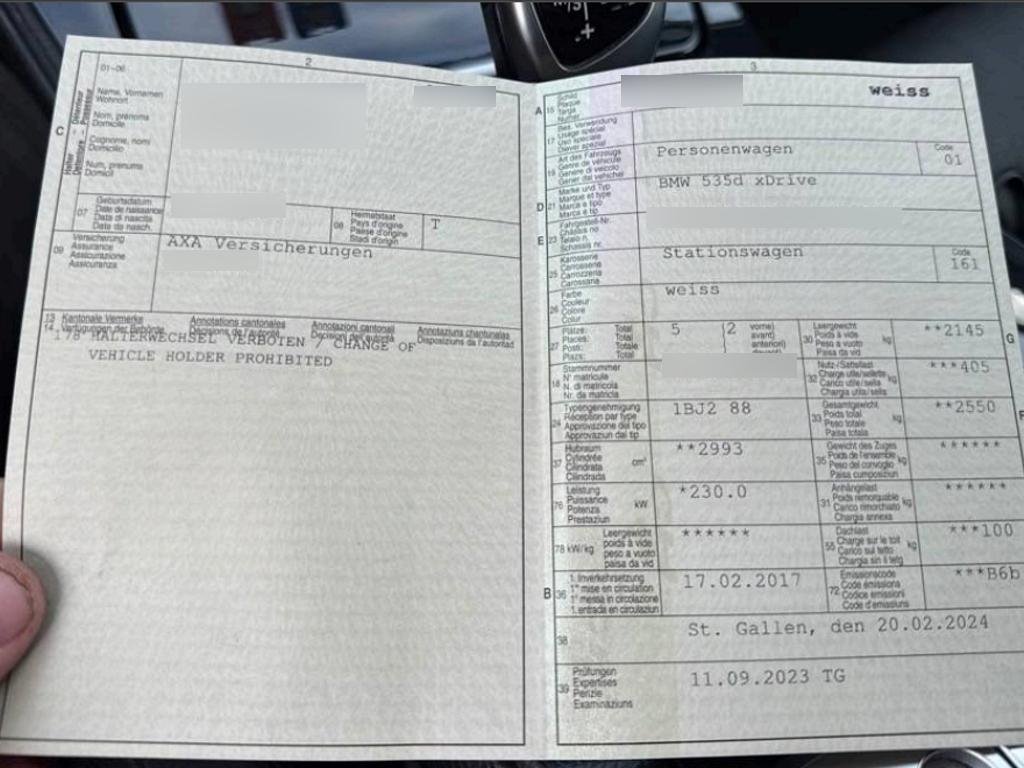 2
01-06
C
Name, Vornamen
Wohnort
Nom, prénoms
Domicile
Cognome, nomi
Domicilio
Num, prenums
Domicil
07
Geburtsdatum
Date de naissance
Data di nascita
Data da nasch.
08
Heimatstaat
Pays d'origine
Paese d'origine
Stadi d'origin
T
09
Versicherung
Assurance
Assicurazione
Assicuranza
AXA Versicherungen
13 Kantonale Vermerke
14 Verfügungen der Behörde
Annotations cantonales
Décisions de l'autorité
Annotazioni cantonali
Decisioni dell'autorità
Annotaziuns chantunalas
Disposiziuns da l'autoritad
178 HALTERWECHSEL VERBOTEN / CHANGE OF
VEHICLE HOLDER PROHIBITED
3
A 15
Schild
Plaque
Targa
Numer
weiss
17
Bes. Verwendung
Usage spécial
Uso speciale
Diever spezial
19
Art des Fahrzeugs
Genre de véhicule
Genere di veicolo
Gener dal vehichel
Personenwagen
Code
01
D 21
Marke und Typ
Marque et type
Marca e tipo
Marca e tip
BMW 535d xDrive
E 23
Fahrgestell-Nr.
Châssis no
Telaio n.
Schassis nr.
25
Karosserie
Carrosserie
Carrozzeria
Carossaria
Stationswagen
Code
161
26
Farbe
Couleur
Colore
Colur
weiss
27
Plätze: Total
Places: Total
Posti: Totale
Plazs: Total
5 (2
vorne)
avant)
anteriori)
30
Leergewicht
Poids à vide
Peso a vuoto
Paisa da vid
kg
**2145
G
18
Stammnummer
N° matricule
N. di matricola
Nr. da matricla
32
Nutz-/Sattellast
Charge utile/sellette
Carico utile/sella
Chargia utila/sella
kg
***405
24
Typengenehmigung
Réception par type
Approvazione del tipo
Approvaziun dal tip
1BJ2 88
33
Gesamtgewicht
Poids total
Peso totale
Paisa totala
kg
**2550
F
37
Hubraum
Cylindrée
Cilindrata
Cilindrada
cm³
**2993
35
Gewicht des Zuges
Poids de l'ensemble
Peso del convoglio
Paisa cumposiziun
kg
******
76
Leistung
Puissance
Potenza
Prestaziun
kW
*230.0
31
Anhängelast
Poids remorquable
Carico rimorchiato
Chargia annexa
kg
******
78 kW/kg
Leergewicht
poids à vide
peso a vuoto
paisa da vid
******
55
Dachlast
Charge sur le toit
Carico sul tetto
Chargia sin il tetg
kg
***100
B 36
1. Inverkehrsetzung
1re mise en circulation
1a messa in circolazione
1. entrada en circulaziun
17.02.2017
72
Emissionscode
Code émissions
Codice emissioni
Code d'emissiuns
***B6b
38
St. Gallen, den 20.02.2024
39
Prüfungen
Expertises
Perizie
Examinaziuns
11.09.2023 TG